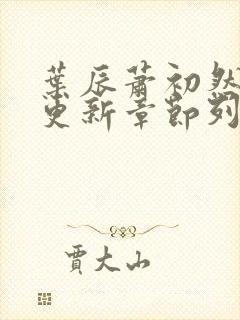 葉辰蕭初然
更新章節列
賈大山